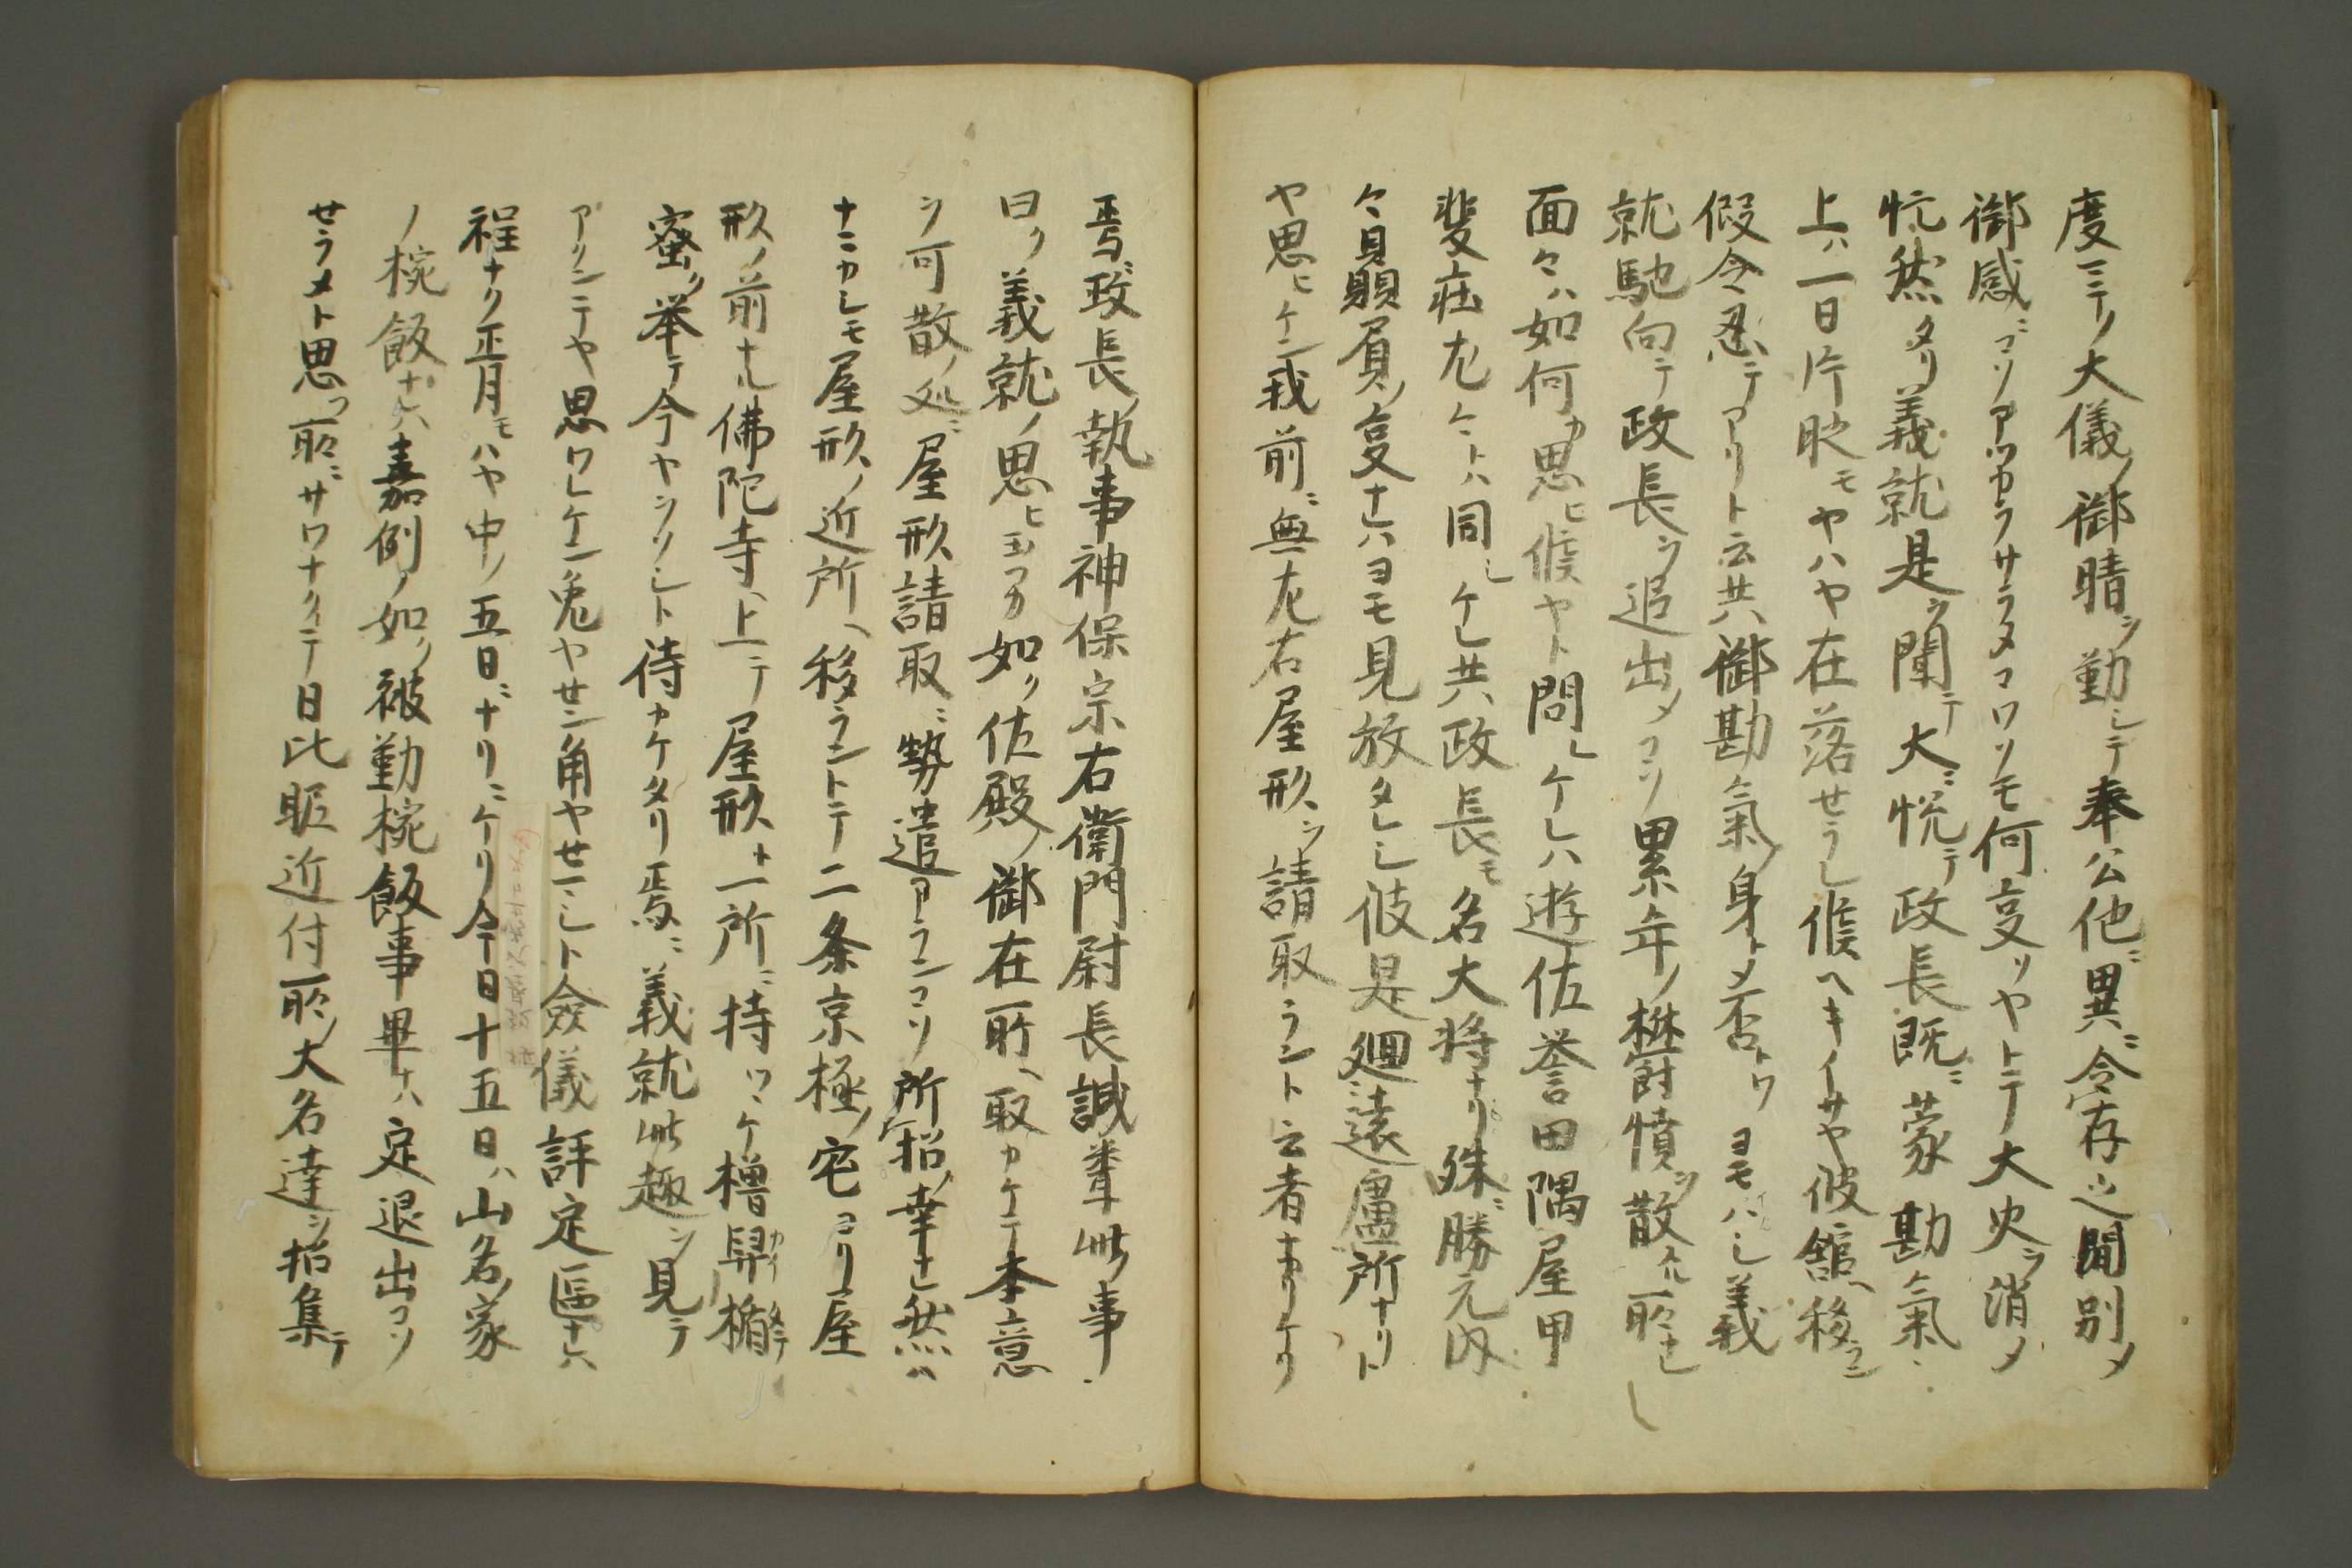 度ニテノ大儀ノ御晴ヲ勤シテ奉公他ニ異ニ令存之間別メ
御感ニコソアツカラサラメコワソモ何事ソヤトテ大火ヲ消メ
忙然タリ義就是ヲ聞テ大ニ悦テ政長既ニ蒙勘氣
上ハ一日片時モヤハヤ在落せラレ候ヘキイサヤ彼舘ヘ移ラン
假令忍テアリト云共御勘氣ノ身トメ否トワヨモハシ義
就馳向テ政長ヲ追出メコソ累年ノ欝憤ヲ散スル所ナレ
面々ハ如何カ思ヒ候ヤト問レケレハ遊佐誉田隅屋甲
斐庄尤ケニトハ同シケレ共政長モ名大将ナリ殊ニ勝元内
々贔屓ノ事ナレハヨモ見放タレシ彼是廻遠慮所ナリト
ヤ思ヒケン我前ニ無左右屋形ヲ請取ラント云者ナカリケリ
焉ニ政長ノ執事神保宗右衛門尉長誠輩此事
曰ク義就ノ思ヒ玉フカ如ク佐殿ノ御在所ヘ取カケテ本意
ヲ可散ノ処ニ屋形請取ニ勢遣アランコソ所招ノ幸ナレ然ハ
ナニカシモ屋形ノ近所ヘ移ラントテ二条京極ノ宅ヨリ屋
形ノ前ナル佛陀寺ヘ上テ屋形ト一所ニ持ツヽケ櫓舁楯
蜜ク挙テ今ヤンソシト待カケタリ焉ニ義就此趣ヲ見テ
アリンニヤ思ワレケン兎ヤせン角ヤせマシト僉儀評定區ナレハ
程ナク正月モハヤ中ノ五日ニナリニケリ今日十五日ハ山名ノ家
ノ椀飯ナレハ嘉例ノ如ク被勤椀飯事畢ナハ定退出コソ
せラメト思フ所ニサワナクイテ日比昵近付所ノ大名達ヲ招集テ